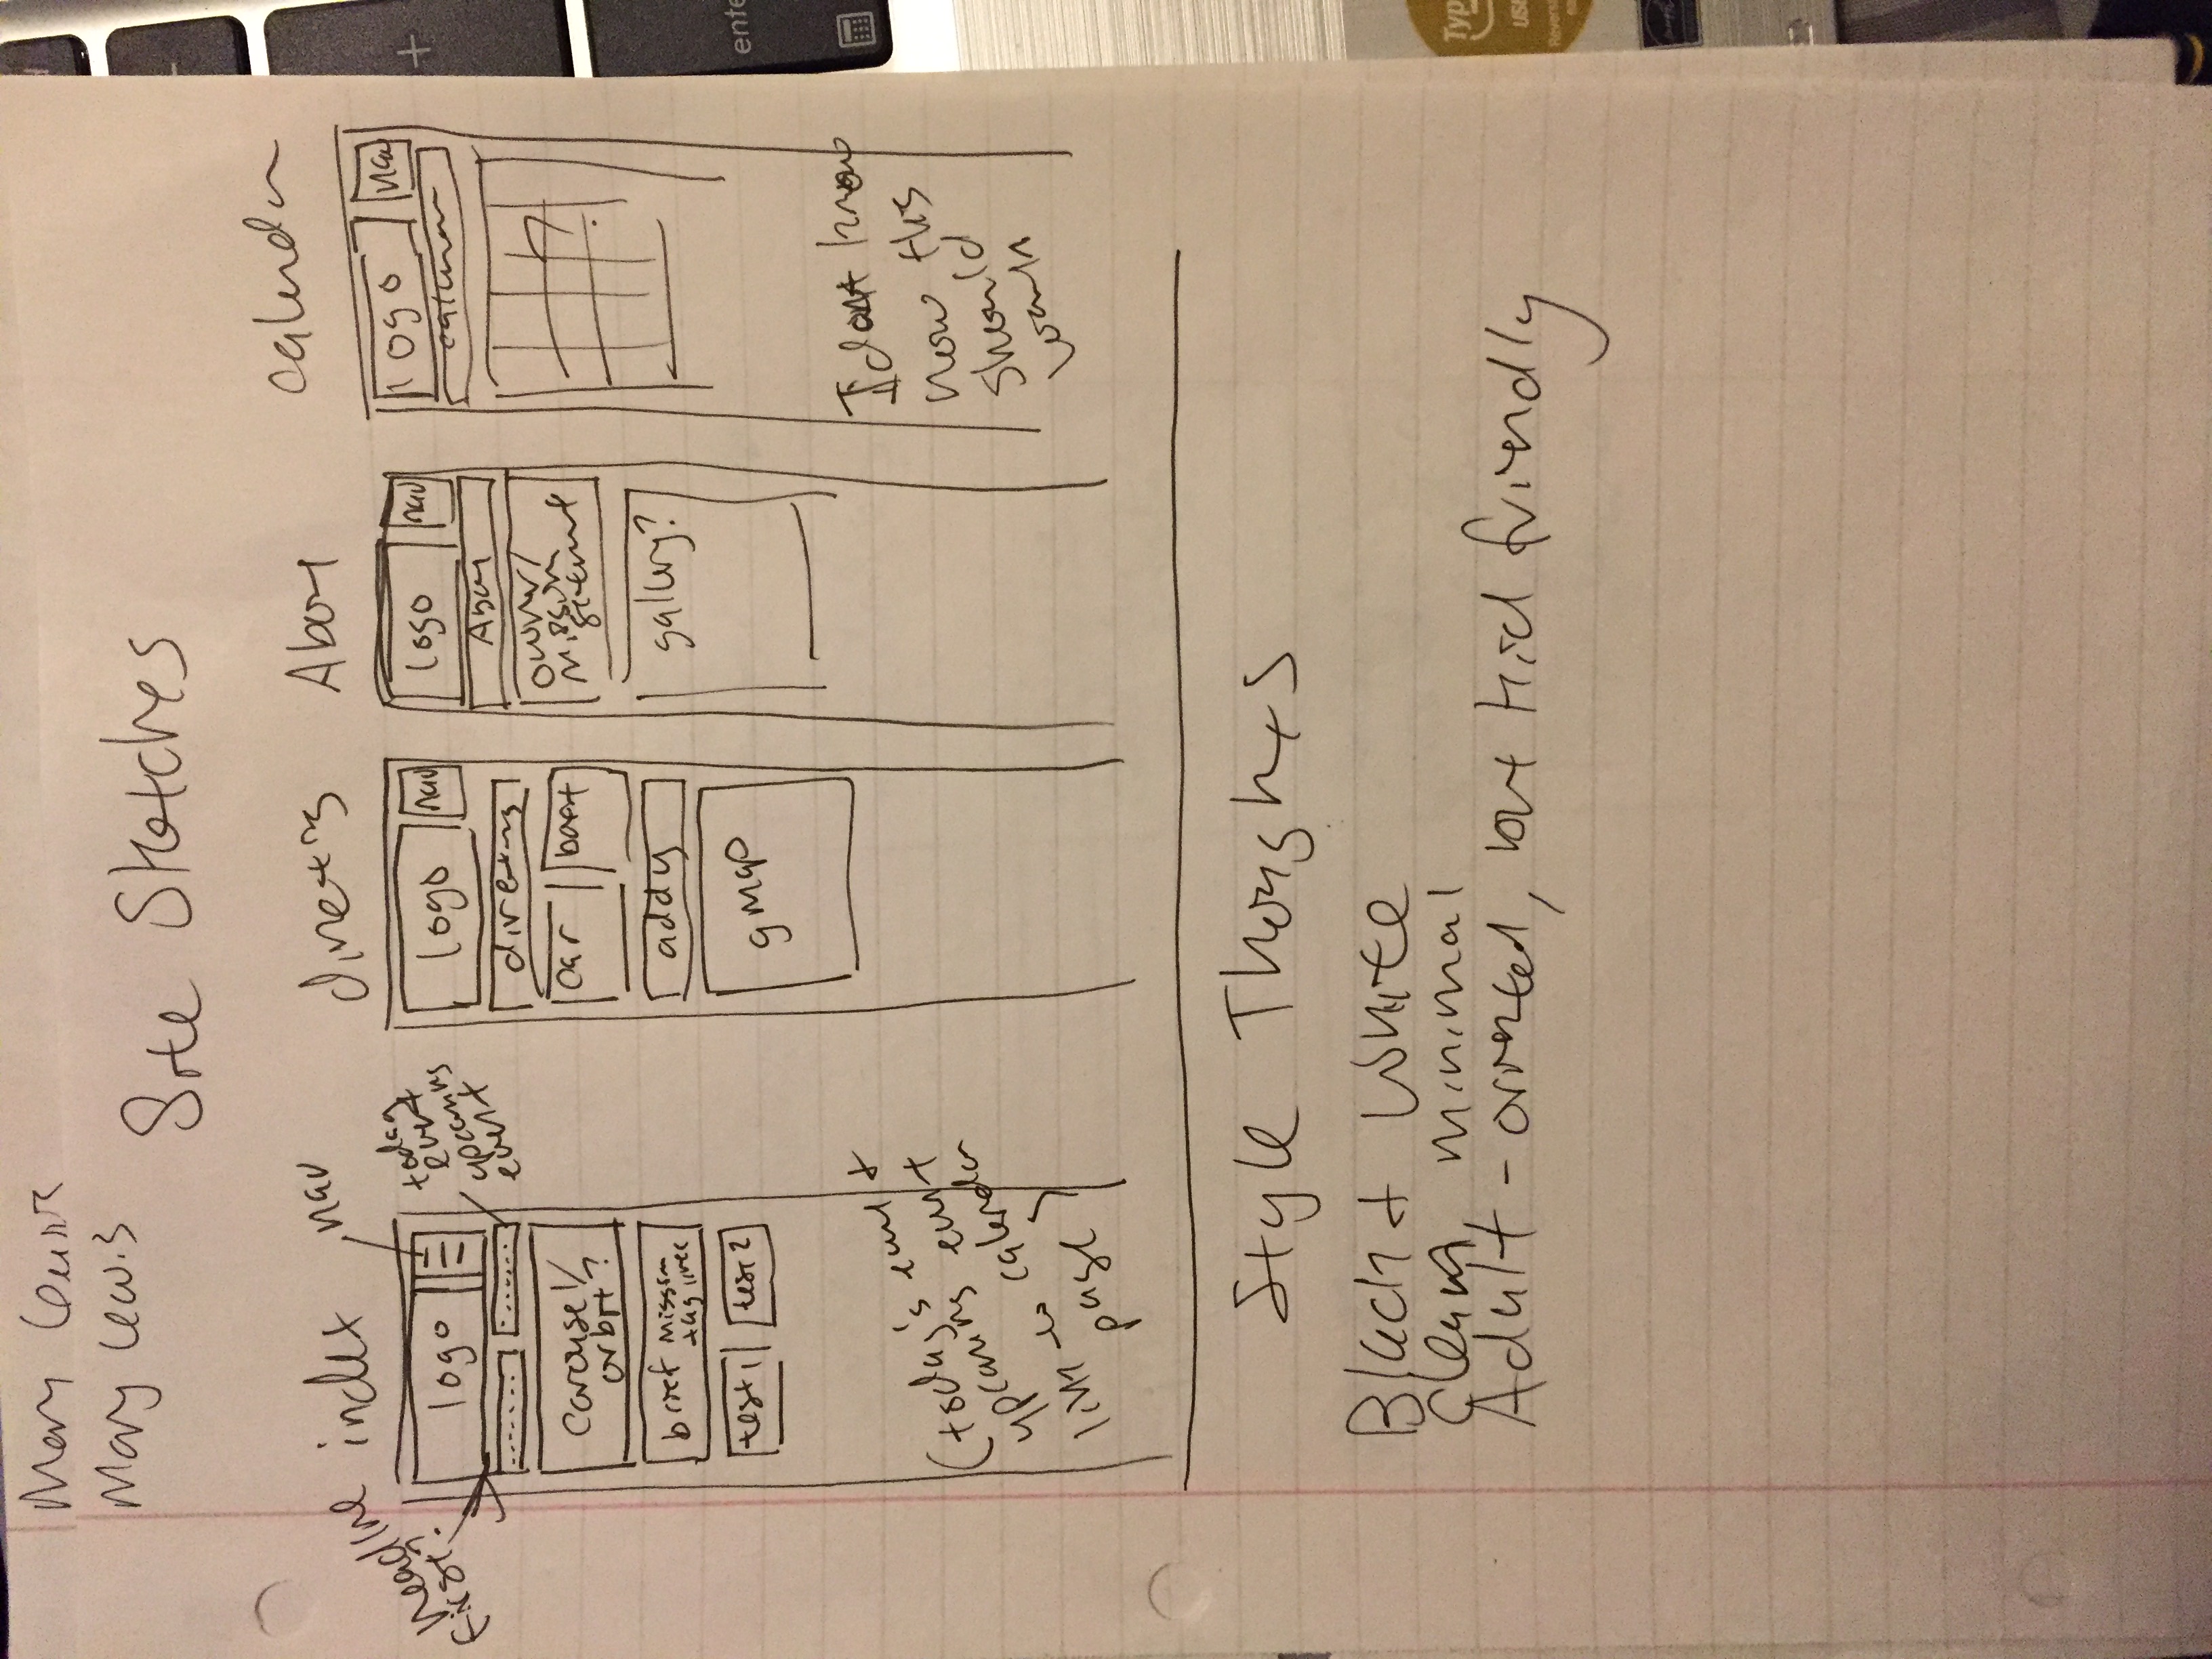 Mary Lewis
Mary Lewis
Site Sketches
index
nav
today
event
upcoming
event
headline
first.
logo
carousel/
or bft?
brief mission
tag line
test 1
test 2
(today's event &
upcoming event
link to calender
page)
directns
logo
nav
directions
car
boat
addy
gmap
About
logo
nav
About
owner/
mission
statement
gallery?
calendr
logo
nav
calender
I dont know
how this
should
work
Style Thoughts
Black & White
Clean minimal
Adult-oriented, but kid friendly
enter
+
USB